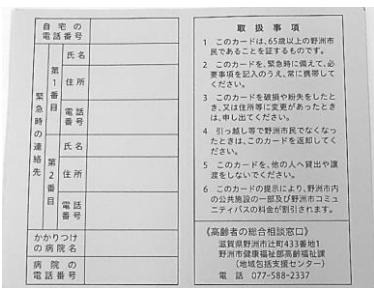 自宅の
電話番号
緊急時の連絡先
第1番目
氏名
住所
電話
番号
第2番目
氏名
住所
電話
番号
かかりつけ
の病院名
病院の
電話番号
取扱事項
1 このカードは、65歳以上の野洲市
民であることを証するものです。
2 このカードを、緊急時に備えて、必
要事項を記入のうえ、常に携帯して
ください。
3 このカードを破損や紛失をしたと
き、又は住所等に変更があったとき
は、申し出てください。
4 引っ越し等で野洲市民でなくなっ
たときは、このカードを返却してく
ださい。
5 このカードを、他の人へ貸出や譲
渡をしないでください。
6 このカードの提示により、野洲市内
の公共施設の一部及び野洲市コミュ
ニティバスの料金が割引されます。
《高齢者の総合相談窓口》
滋賀県野洲市辻町433番地1
野洲市健康福祉部高齢福祉課
(地域包括支援センター)
電話 077-588-2337